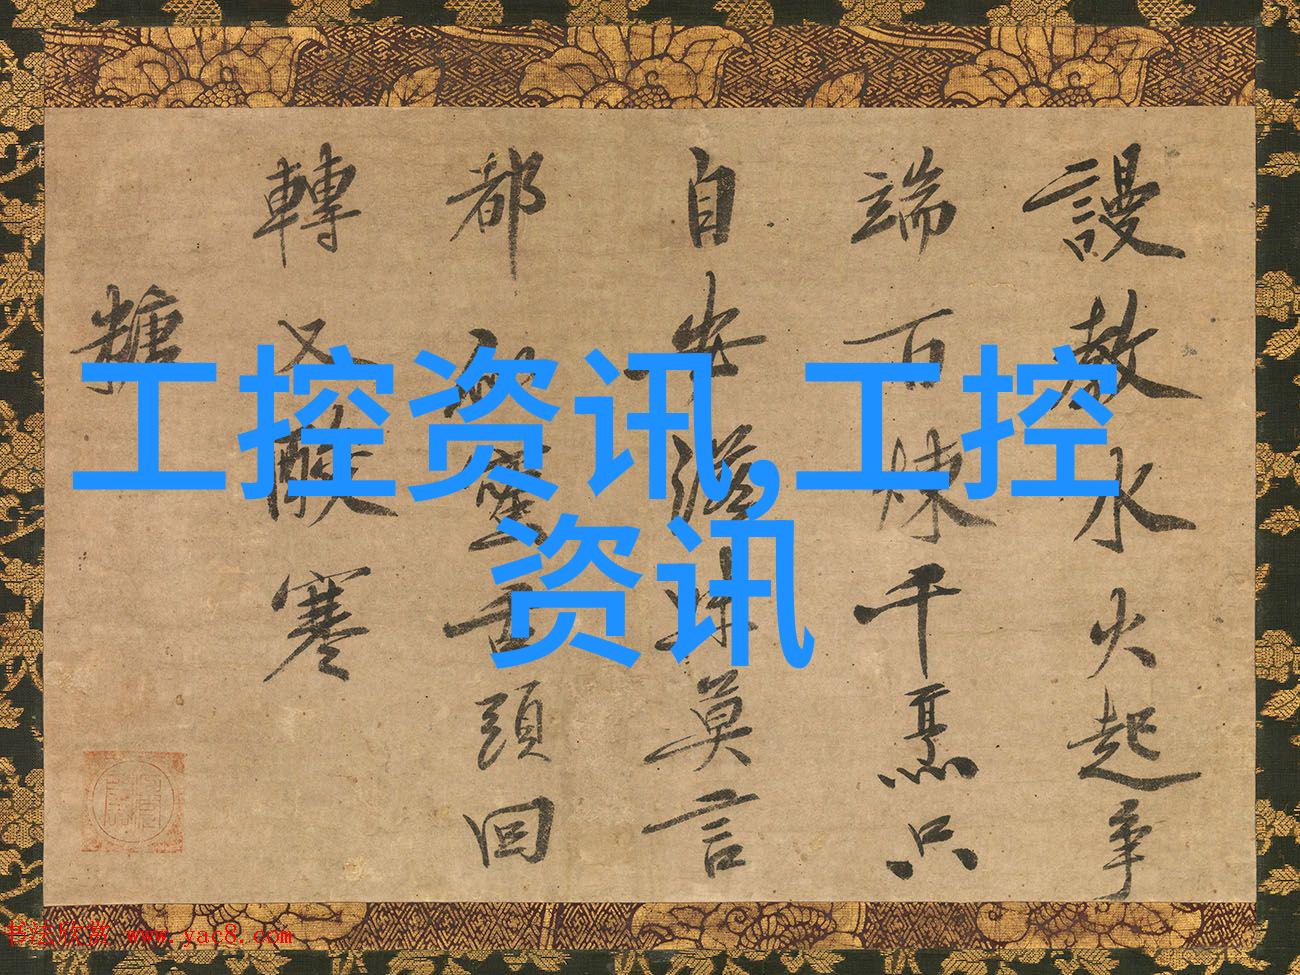 工控资讯,工控
资讯
謾教水火起爭
端百煉千烹只
自安滋味莫言
都舌頭回
轉又酸寒
糖
书法欣赏 www.yac8.com